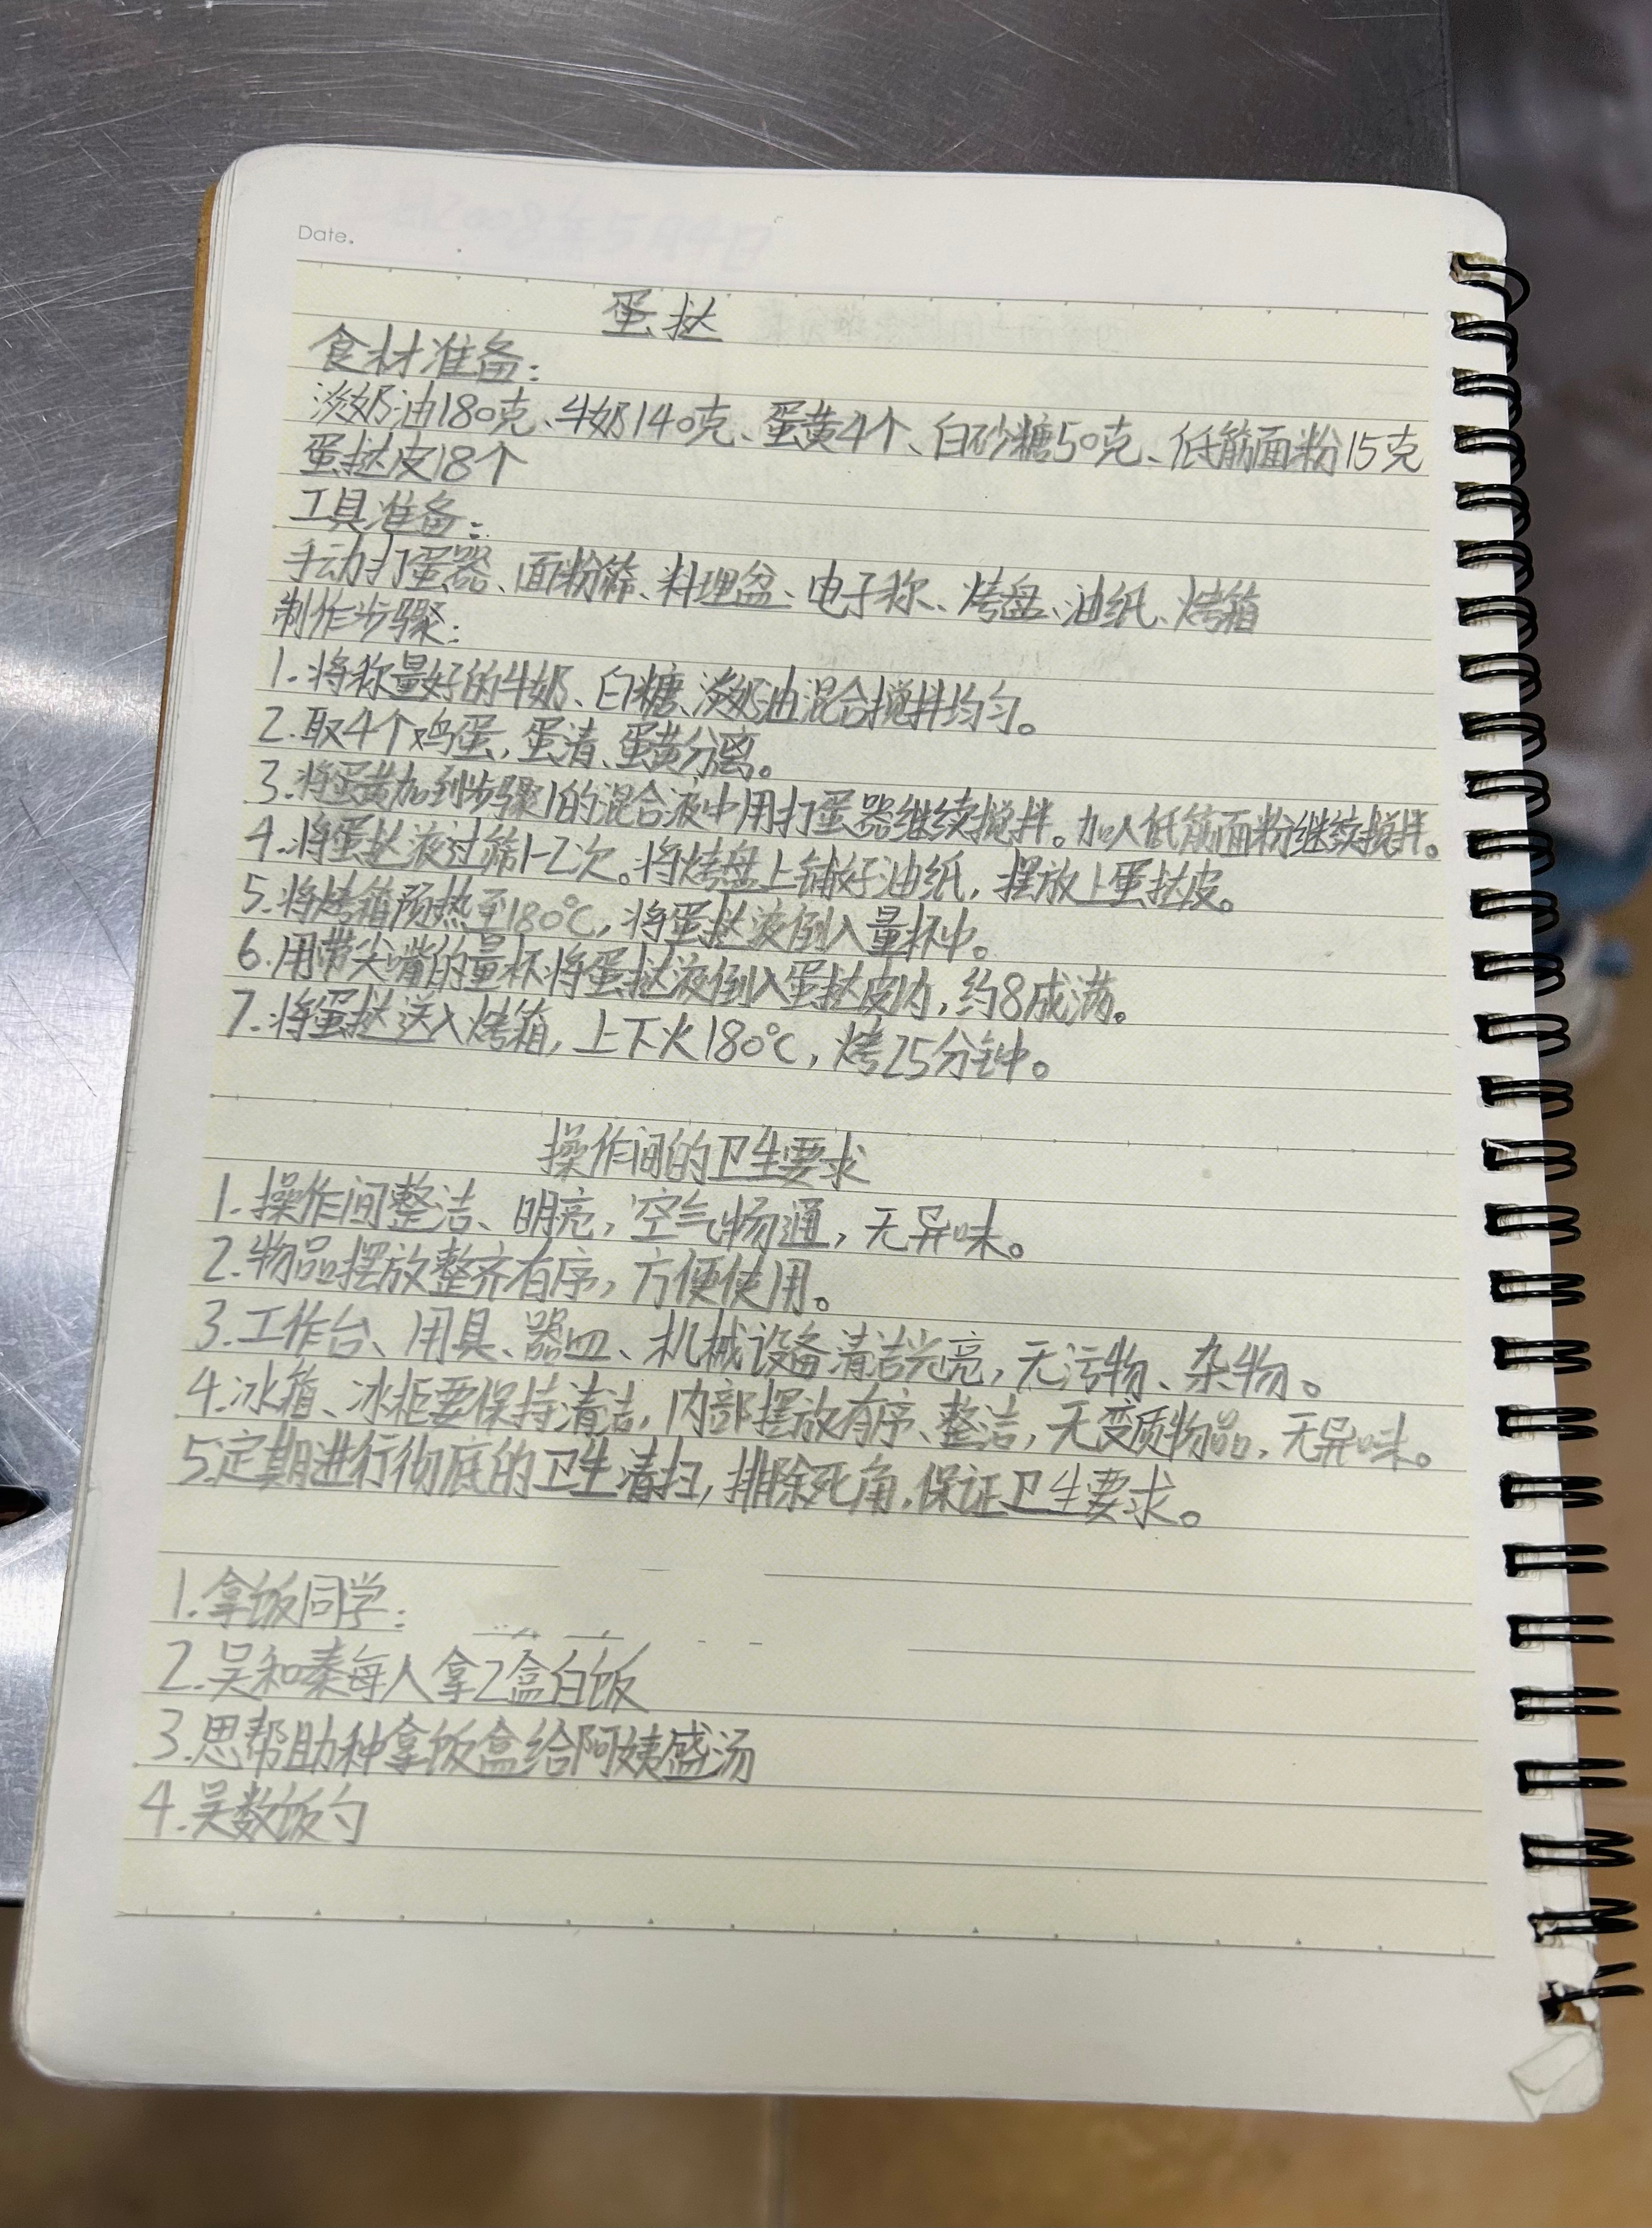 Date.
蛋挞
食材准备:
淡奶油180克、牛奶140克、蛋黄4个、白砂糖50克、低筋面粉15克
蛋挞皮18个
工具准备:
手动打蛋器、面粉筛、料理盆、电子称、烤盘、油纸、烤箱
制作步骤:
1.将称量好的牛奶、白糖、淡奶油混合搅拌均匀。
2.取4个鸡蛋,蛋清、蛋黄分离。
3.将蛋黄加到步骤1的混合液中用打蛋器继续搅拌。加入低筋面粉继续搅拌。
4.将蛋挞液过筛1-2次。将烤盘上铺好油纸,摆放上蛋挞皮。
5.将烤箱预热至180℃,将蛋挞液倒入量杯中。
6.用带尖嘴的量杯将蛋挞液倒入蛋挞皮内,约8成满。
7.将蛋挞送入烤箱,上下火180℃,烤25分钟。
操作间的卫生要求
1.操作间整洁、明亮,空气畅通,无异味。
2.物品摆放整齐有序,方便使用。
3.工作台、用具、器皿、机械设备清洁光亮,无污物、杂物。
4.冰箱、冰柜要保持清洁,内部摆放有序、整洁,无变质物品,无异味。
5.定期进行彻底的卫生清扫,排除死角,保证卫生要求。
1.拿饭同学:
2.吴和秦每人拿2盒白饭
3.思帮助种拿饭盒给阿姨盛汤
4.吴数饭勺